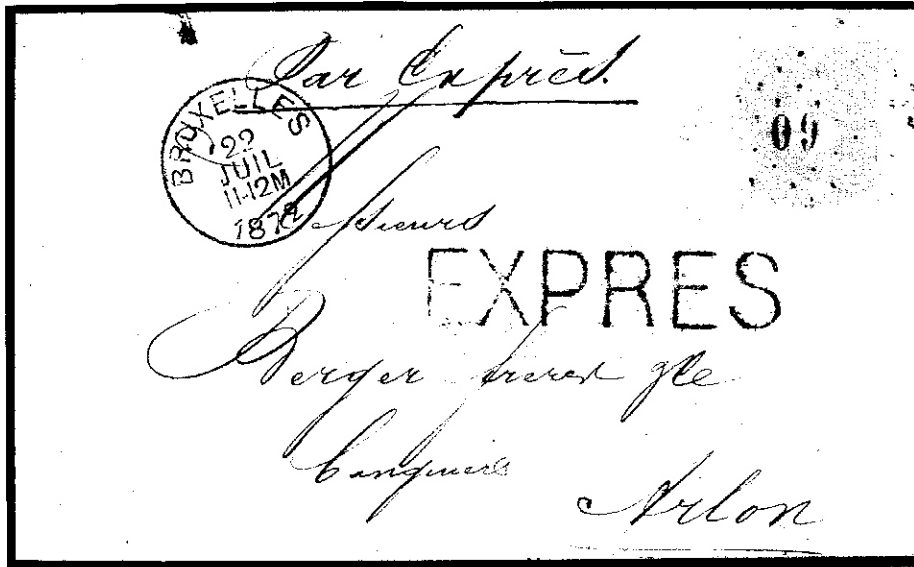 Par Exprès.
BRUXELLES
22
JUIL
11-12M
1872
60
Messieurs
EXPRES
Berger frères
banquiers
Arlon